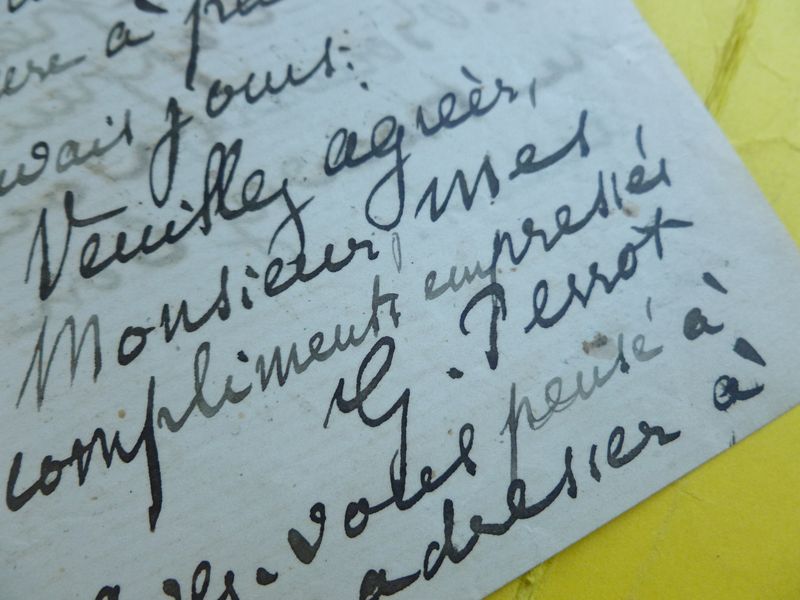 à
vais jours.
Veuillez agréer,
Monsieur, mes
compliments empressés
G. Perrot
vous pensé à
adresser à